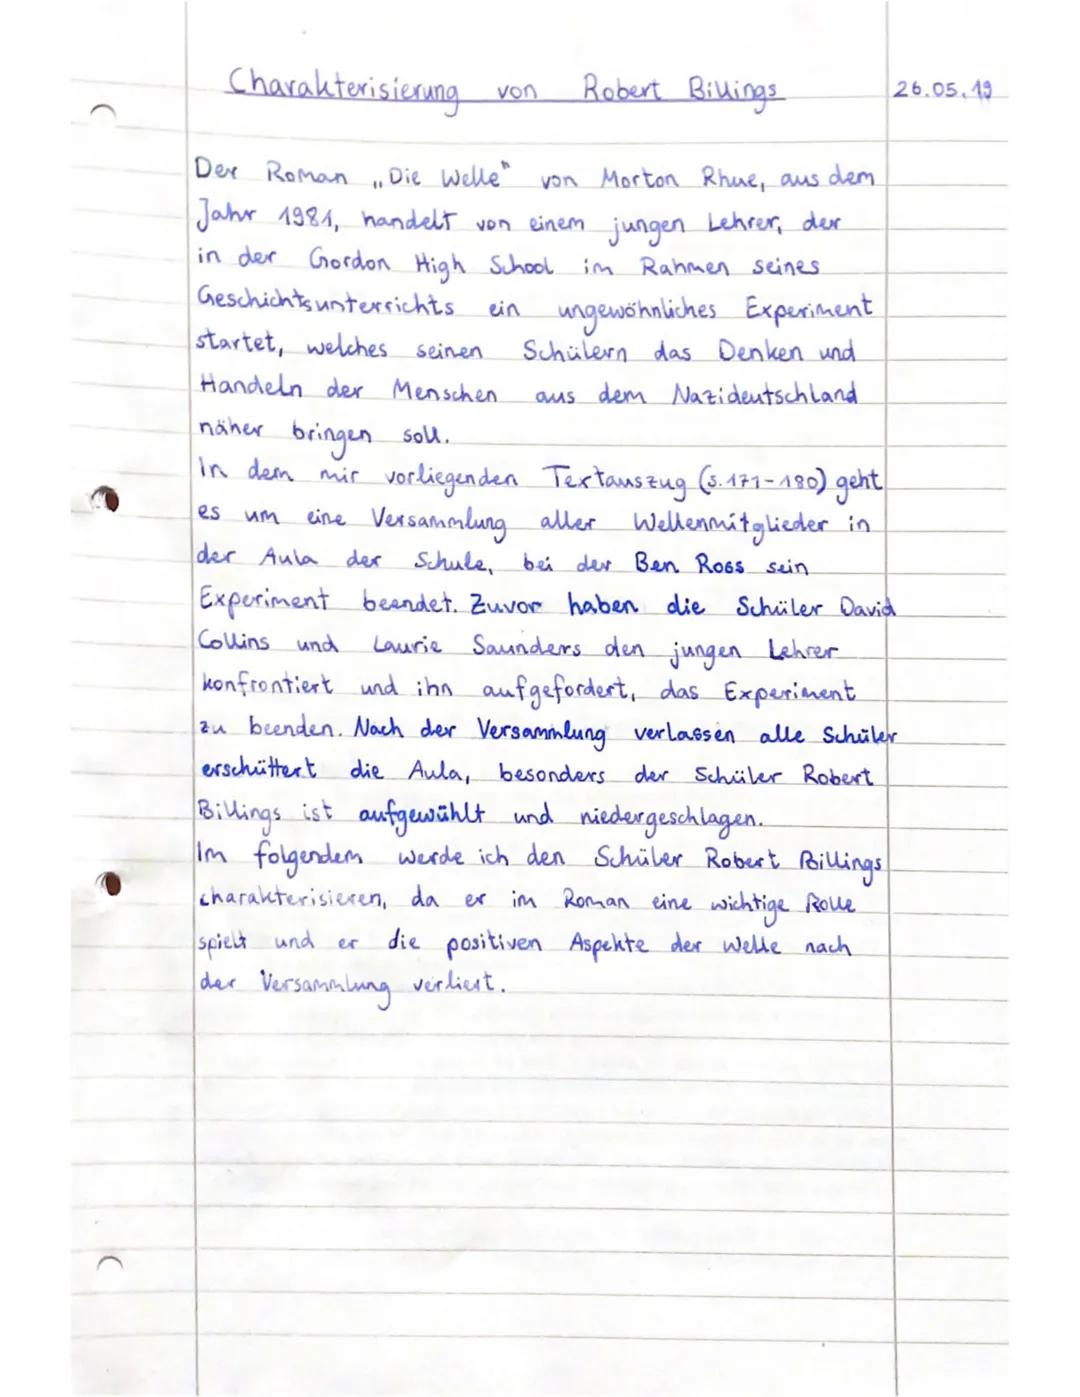 Charakterisierung von Robert Billings 26.05.19
Der Roman „Die Welle" von Morton Rhue, aus dem
Jahr 1981, handelt von einem jungen Lehrer, der
in der Gordon High School im Rahmen seines
Geschichtsunterrichts ein ungewöhnliches Experiment
startet, welches seinen Schülern das Denken und
Handeln der Menschen aus dem Nazideutschland
näher bringen soll.
In dem mir vorliegenden Textauszug (S.171-180) geht
es um eine Versammlung aller Wellenmitglieder in
der Aula der Schule, bei der Ben Ross sein
Experiment beendet. Zuvor haben die Schüler David
Collins und Laurie Saunders den jungen Lehrer
konfrontiert und ihn aufgefordert, das Experiment
zu beenden. Nach der Versammlung verlassen alle Schüler
erschüttert die Aula, besonders der Schüler Robert
Billings ist aufgewühlt und niedergeschlagen.
Im folgendem werde ich den Schüler Robert Billings
charakterisieren, da er im Roman eine wichtige Rolle
spielt und er die positiven Aspekte der Welle nach
der Versammlung verliert.